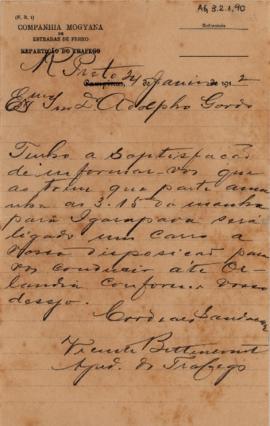 AG 3.2.1.90
(F. R. 1)
COMPANHIA MOGYANA
DE
ESTRADAS DE FERRO
REPARTIÇÃO DO TRAFEGO
Referencia
R. Preto 24 de Janeiro de 191 2
Exmo Snr Dr Adolpho Gordo
Tenho a Saptisfação
de informar-vos que
ao trem que parte ama
nhã as 3.15 da manhã
para Igarapava será
ligado um carro a
vossa disposição para
vos conduzir até Or-
landia conforme vosso
desejo.
Cordeaes Saudações
Vicente Bittencourt
Ajud. do Trafego